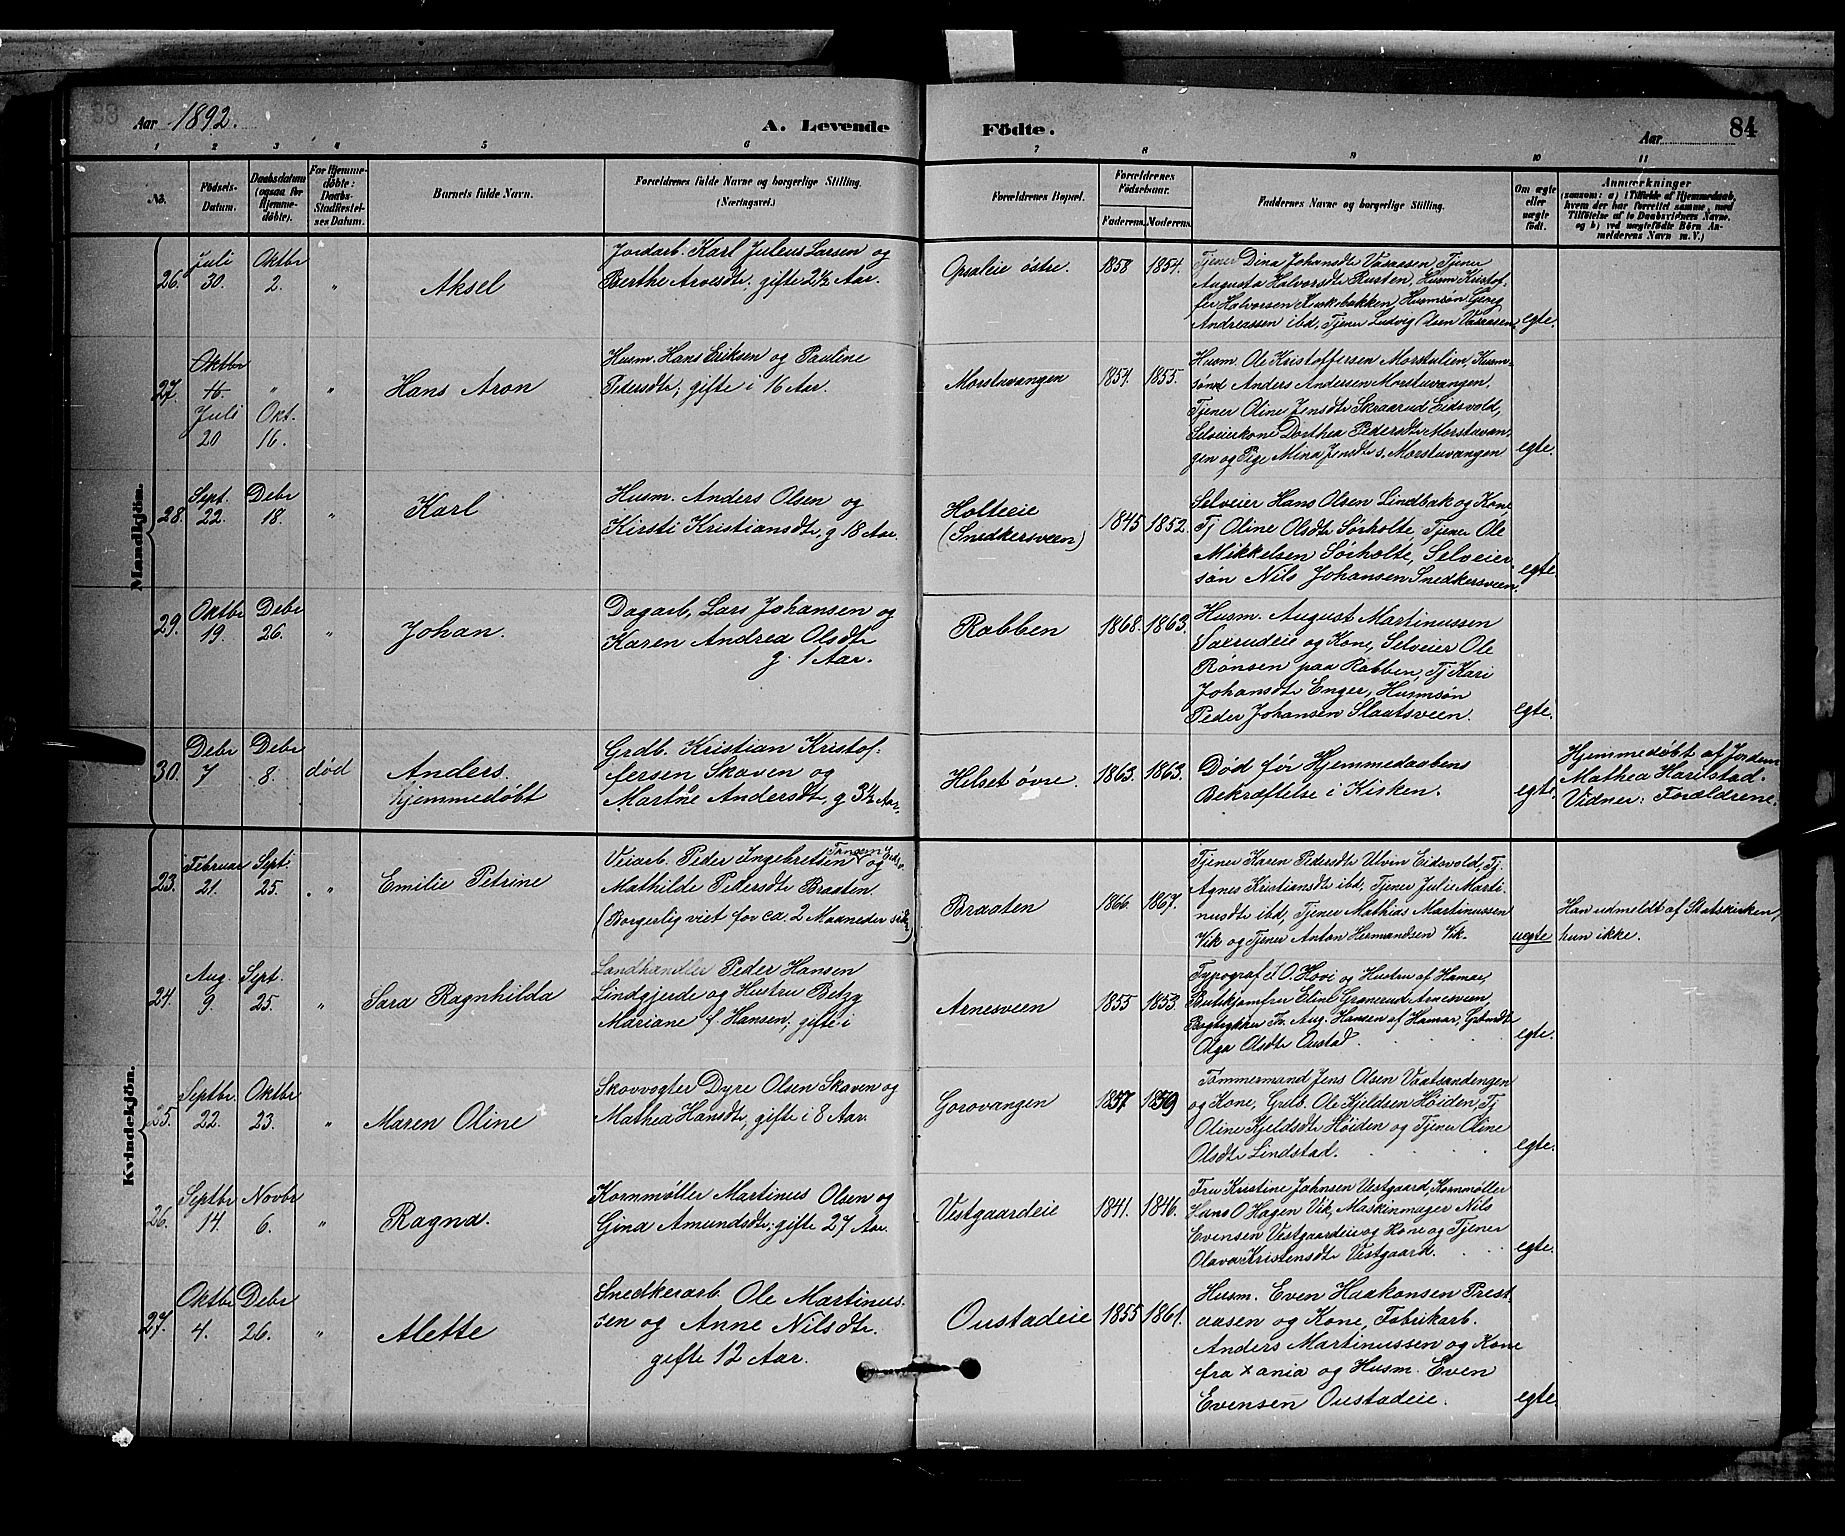 83
Aar 1892.
A. Levende
Födte.
Aar
84
1 2 3 4 5 6 7 8 9 10 11
No.
Födsels-Datum.
Daabsdatum (ogsaa for Hjemmedöbte).
For Hjemmedöbte: Daabs-Stadfæstelses Datum.
Barnets fulde Navn.
Forældrenes fulde Navne og borgerlige Stilling. (Næringsvei.)
Forældrenes Bopæl.
Forældrenes Födselsaar.
Faderens. Moderens.
Faddernes Navne og borgerlige Stilling.
Om ægte eller uægte födt.
Anmærkninger
(saasom: a) i Tilfælde af Hjemmedaab, hvem der har forrettet samme, med Tilföielse af to Daabsvidners Navne, og b) ved uægtefödte Börn Anmelderens Navn m. V.)
Mandkjön.
26.
Juli 30.
Oktbr 2.
"
Aksel
Jordarb. Karl Julius Larsen og
Berthe Arvesdtr, gifte 2½ Aar.
Opsaleie östre.
1858 1854.
Tjener Dina Johansdtr Vaaraasen Tjener
Augusta Halvorsdtr Rusten, Husm Kristof-
fer Halvorsen bakken, Husmsön Georg
Andreassen ibd, Tjener Ludvig Olsen
egte.
27.
Oktbr 16.
Juli 20
" Okt. 16.
"
Hans Aron
Husm. Hans Eriksen og Pauline
Pedersdtr; gifte i 16 Aar.
Morstuvangen
1854. 1855.
Husm. Ole Kristoffersen Morstulien, Husm-
sönd Anders Andersen Morstuvangen.
Tjener Oline Jensdtr Skraarud Eidsvold,
Selveierkone Dorthea Pedersdtr Morstuvan-
gen og Pige Mina Jensdtr s. Morstuvangen
egte.
28.
Sept. 22.
Debr 18.
"
Karl
Husm. Anders Olsen og
Kirsti Kristiansdtr, g 18 Aar.
Holteeie
(Snedkersveen)
1845 1852.
Selveier Hans Olsen Lindbak og Kone
Tj Oline Olsdtr Sørholte, Tjener Ole
Mikkelsen Sørholte, Selveier
søn Nils Johansen Snedkersveen
egte.
29.
Oktbr 19.
Debr 26.
"
Johan.
Dagarb. Lars Johansen og
Karen Andrea Olsdtr
g. 1 Aar.
Rabben
1868. 1863.
Husm. August Martinussen
Saxrudeie og Kone, Selveier Ole
Rønsen paa Rabben, Tj Kari
Johansdtr Enger, Husmsøn
Peder Johansen Slaatsveen.
egte.
30.
Debr 7
Debr 8.
død
Anders.
hjemmedøbt
Grdb. Kristian Kristof-
fersen Skaven og
Martine Andersdtr, g 3½ Aar.
Helset øvre.
1863. 1863.
Død før Hjemmedaabens
Bekræftelse i Kirken.
egte.
Hjemmedøbt af Jordem
Mathea Harilstad.
Vidner: Forældrene.
Kvindekjön.
23.
Februar 21.
Sept. 25.
"
Emilie Petrine
Veiarb. Peder Ingebretsen Tangen og
Mathilde Pedersdtr Braaten
(Borgerlig viet for ca. 2 Maaneder )
Braaten
1866. 1867.
Tjener Karen Pedersdtr Ulvin Eidsvold, Tj.
Agnes Kristiansdtr ibd, Tjener Julie Marti-
nusdtr ibd, Tjener Mathias Martinussen
Vik og Tjener Anton Hermandsen Vik.
uegte
Han udmeldt af Statskirken,
hun ikke.
24.
Aug. 9.
Sept. 25.
"
Sara Ragnhilda
Landhandler Peder Hansen
Lindgjerde og Hustru Betzy
Mariane f. Hansen, gifte i
Arnesveen
1855 1853.
Typograf O. Hovi og Hustru af Hamar,
Butikjomfru Eline Granerud Arnesveen,
Bogtrykker Fr. Aug. Hansen af Hamar,
Olga Olsdtr Oustad.
egte.
25.
Septbr. 22.
Oktbr 23.
"
Maren Oline
Skovvogter Dyre Olsen Skaven og
Mathea Hansdtr, gifte i 8 Aar.
Gorovangen
1857 1859
Tømmermand Jens Olsen Vaatsandengen
og Kone, Grdb. Ole Kjeldsen Høiden, Tj
Oline Kjeldsdtr Høiden og Tjener Oline
Olsdtr Lindstad.
egte.
26.
Septbr 14.
Novbr 6.
"
Ragna.
Kornmøller Martinus Olsen og
Gina Amundsdtr; gifte 27 Aar.
Vestgaardeie
1841. 1846.
Fru Kristine Johnsen Vestgaard, Kornmøller
Hans O Hagen Vik, Maskinmager Nils
Evensen Vestgaardeie og Kone og Tjener
Olava Kristensdtr Vestgaard.
egte.
27.
Oktbr 4.
Debr 26.
"
Alette
Snedkerarb. Ole Martinus-
sen og Anne Nilsdtr.
gifte 12 Aar.
Oustadeie
1855 1861.
Husm. Even Haakonsen Prest-
aasen og Kone, Fabrikarb.
Anders Martinussen og Kone
fra Xania og Husm. Even
Evensen Oustadeie.
egte.